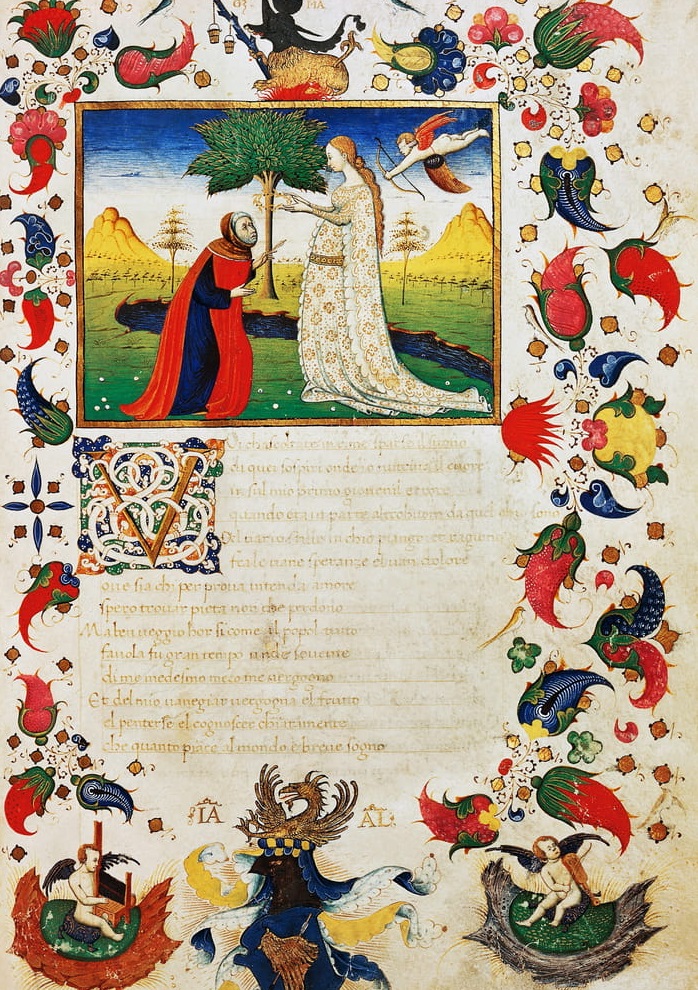 MA
VOi chascoltate in rime sparse il suono
di quei sospiri ondio nutriva il cuore
in sul mio primo giovenil errore
quando era in parte altrohuom da quel chi sono
Del vario stile in chio piango et ragiono
fra le vane speranze el van dolore
ove sia chi per prova intenda amore
spero trovar pieta non che perdono
Ma ben veggio hor si come al popol tutto
favola fu gran tempo unde sovente
di me medesmo meco me vergogno
Et del mio vanegiar vergogna el fructo
el pentersi el cognoscer chiaramente
che quanto piace al mondo è breve sogno
IA AL